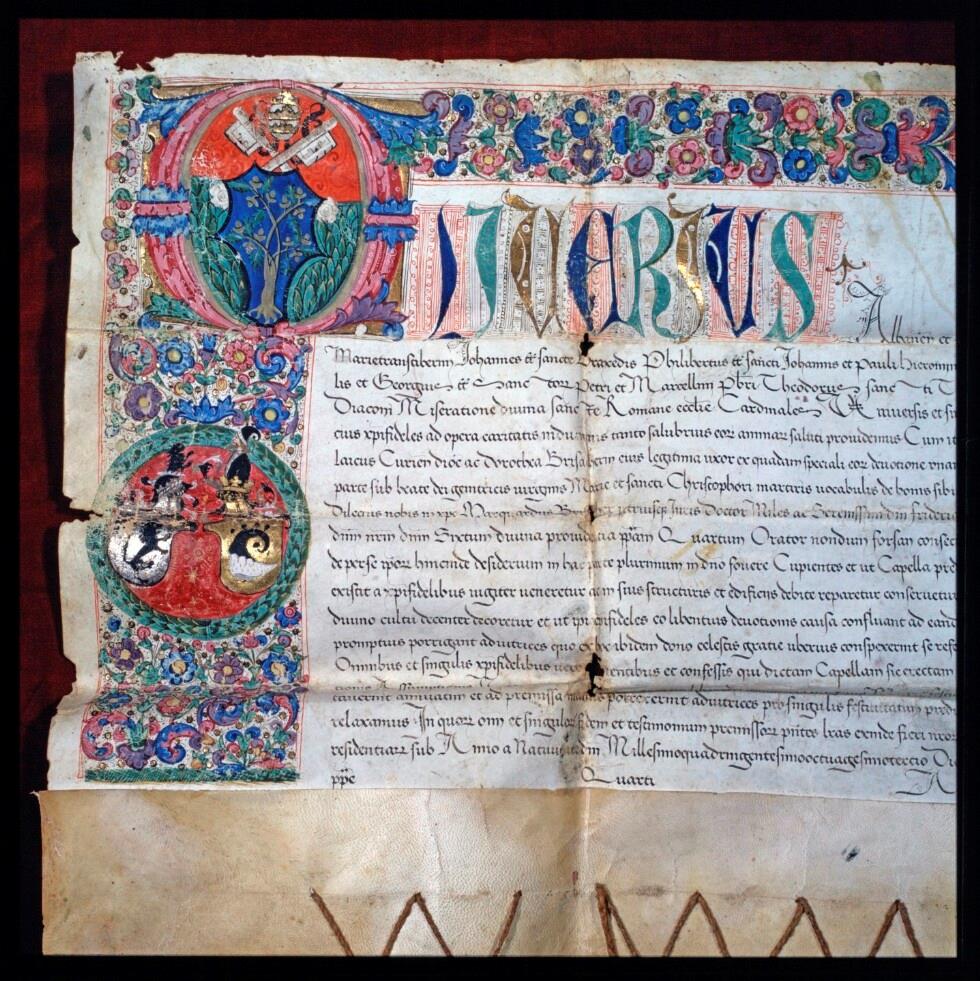 OLIVERIUS
Albanien et
Marietranstiberim Johannes tt sancte Praxedis Philibertus tt sancti Johannis et Pauli hieronim
lis et Georgius tt Sanctorz Petri et Marcellini Pbri Theodorus sancti T
Diaconi Miseratione diuina sancte Romane ecclie Cardinales Vniuersis et si
cius xpifideles ad opera caritatis inducimus tanto salubrius eor animar saluti prouidemus Cum it
laicus Curien dioc ac dorothea eius legitima vxor ex quadam speciali eor deuotione vnam
parte sub beate dei genitricis uirginis Marie et sancti Christophori martiris vocabulis de bonis sibi
Dilectus nobis in xpo Marquardus vtriusqz Iuris Doctor Miles ac Serenissimi dni frideric
diuina prouidentia Quartum Orator nondum forsan consec
de per se hmc inde desiderium in hac parte plurimum in dno fouere Cupientes et ut Capella pred
existit a xpifidelibus iugiter veneretur ac in suis structuris et edificiis debite reparetur conseruetur
diuino cultui decenter decoretur et ut ipi xpifideles eo libentius deuotionis causa confluant ad eand
promptius porrigant adiutrices quo ex hoc ibidem dono celestis gratie uberius conspexerint se refe
Omnibus et singulis xpifidelibus vere penitentibus et confessis qui dictam Capellam sic erectam
citauerint annuatim et ad premissa manus porrexerint adiutrices pro singulis festiuitatum pred
relaxamus In quorz omn et singulorz fidem et testimonium premissorz pntes lras exinde fieri nror
residentiarz sub Anno a Natiuitate dni Millesimoquadringentesimooctuagesimotercio Di
ppe Quarti A